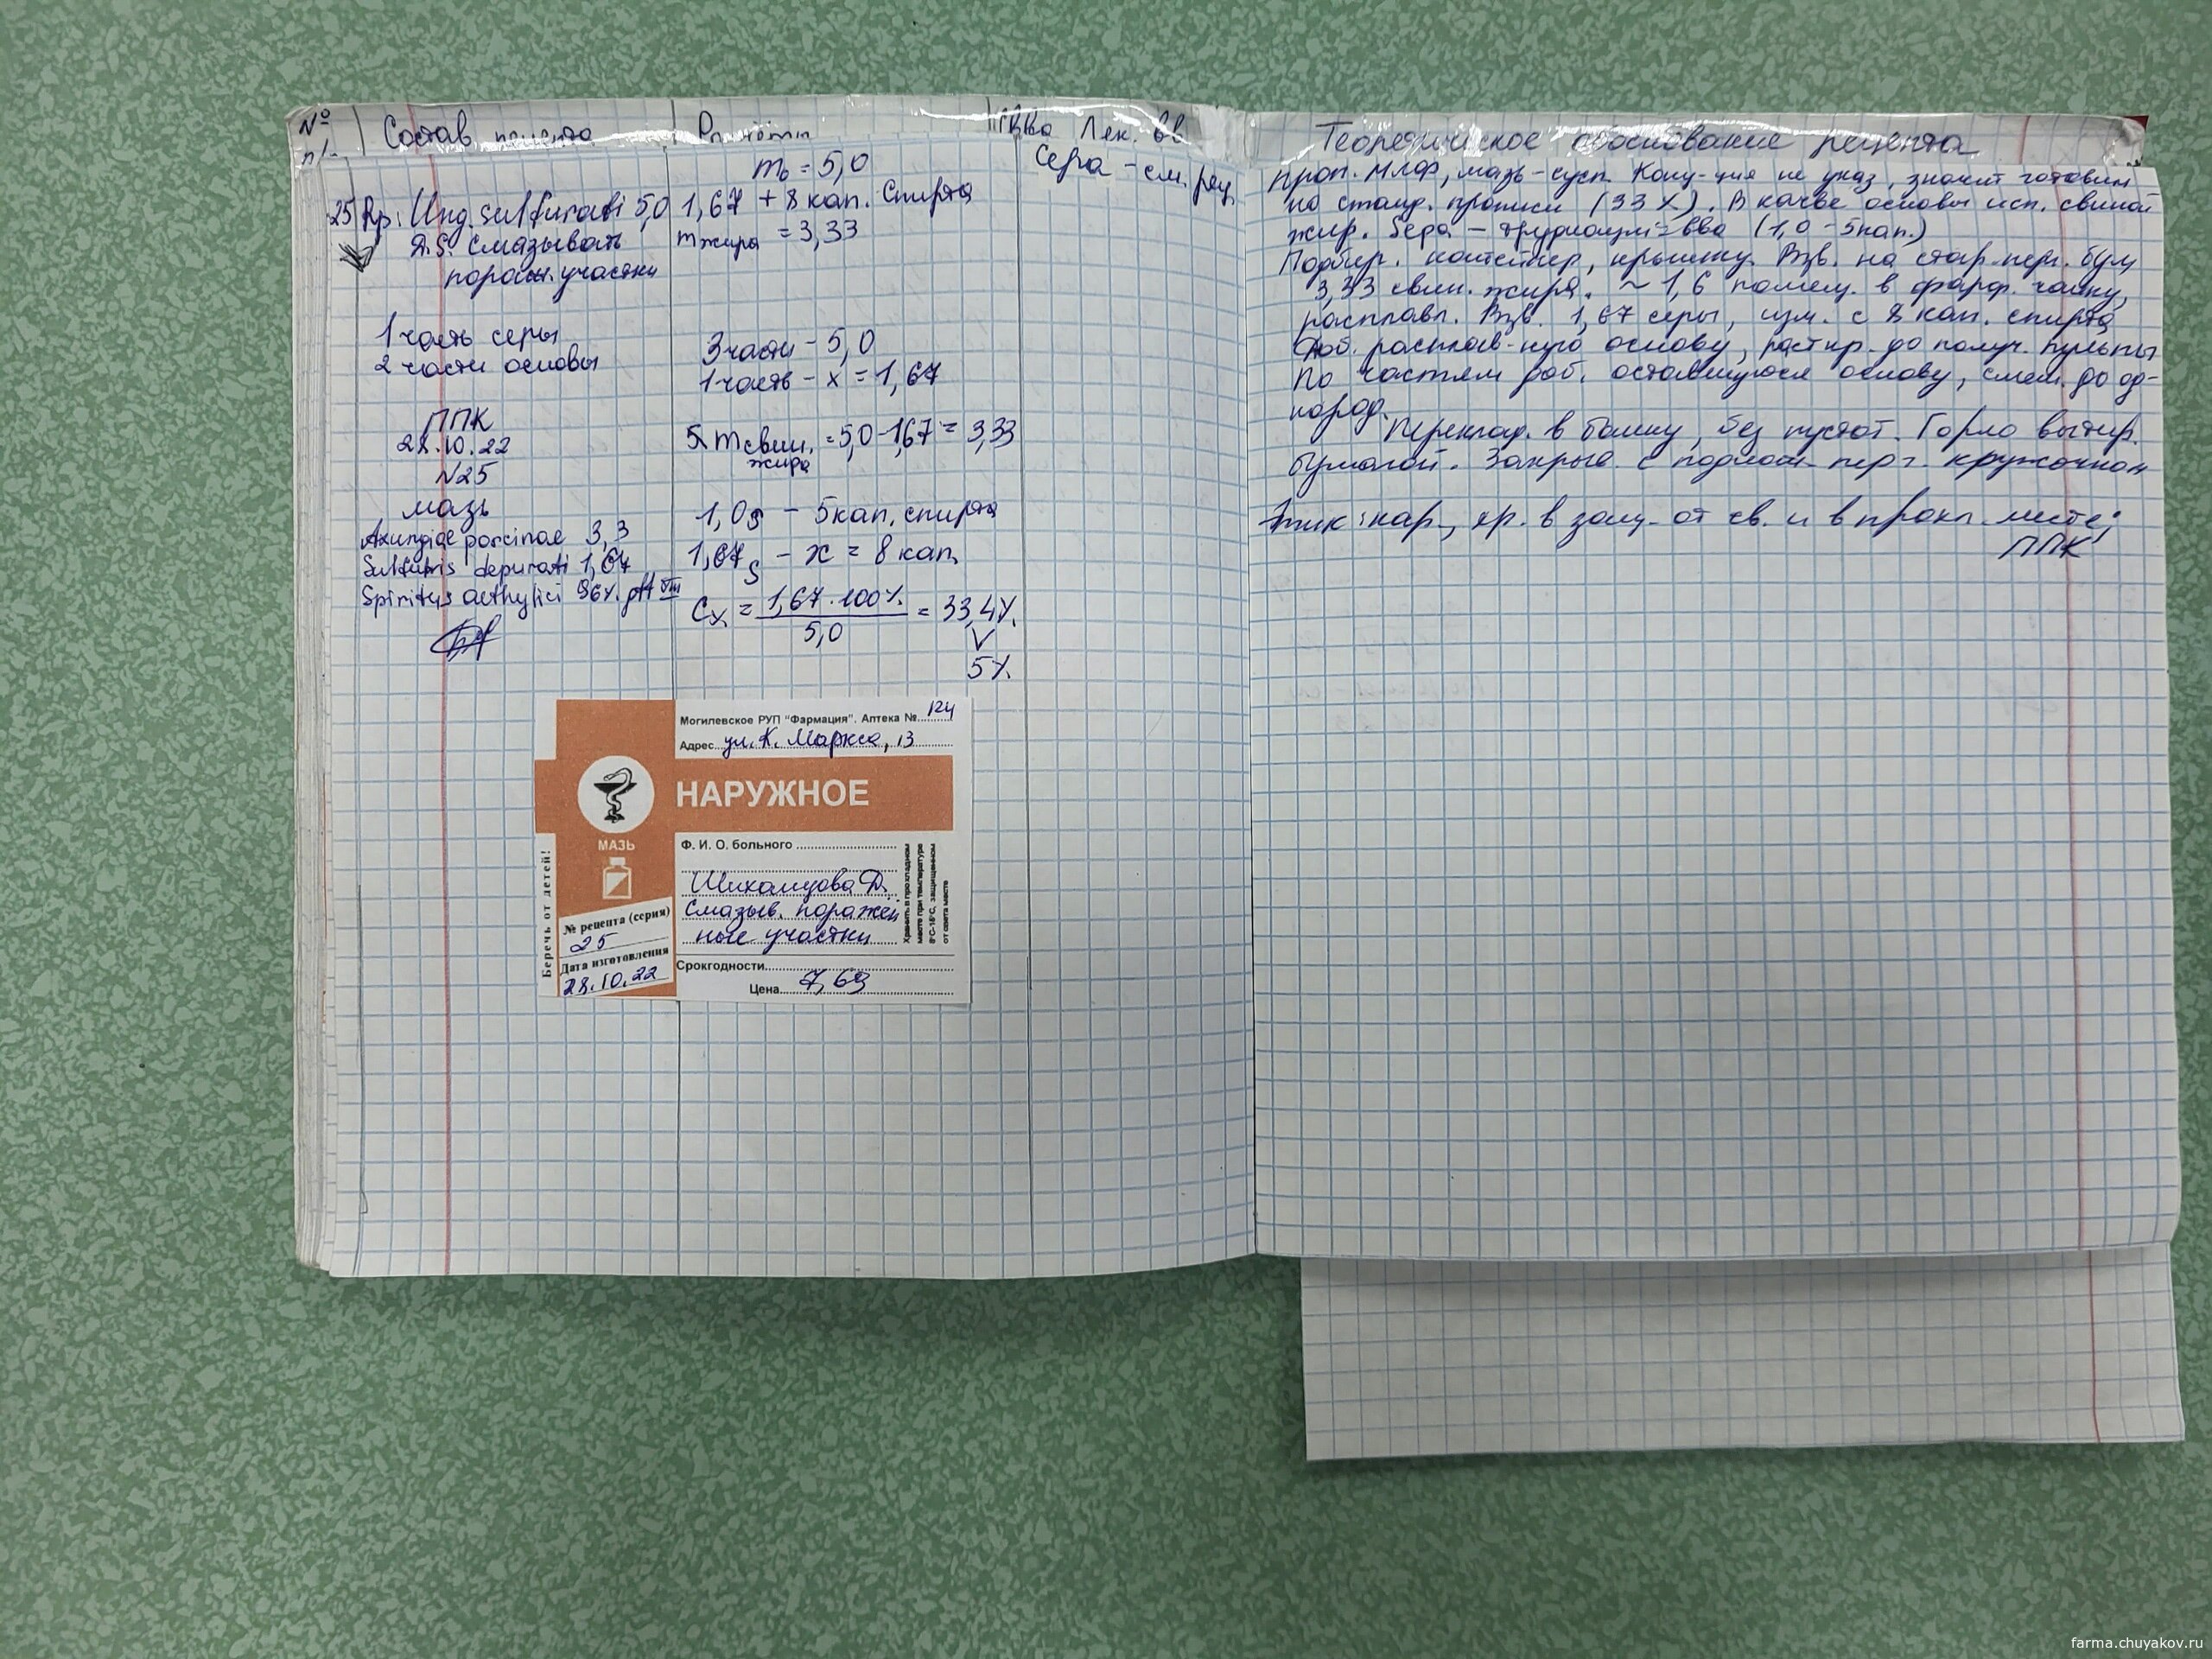 № п/п
Состав рецепта
Расчёты
Св-ва Лек. вв
Сера - см. рец.
25 Rp: Ung. sulfurati 5,0
D.S. Смазывать
пораж. участки
1 часть серы
2 части основы
ППК
28.10.22
N25
мазь
Axungiae porcinae 3,3
Sulfuris depurati 1,67
Spiritus aethylici 96%. gtt VIII
m₀ = 5,0
1,67 + 8 кап. Спирта
m жира = 3,33
3 части - 5,0
1 часть - x = 1,67
m свин. жира = 5,0-1,67 = 3,33
1,0 S - 5 кап. спирта
1,67 S - x = 8 кап.
C% = 1,67·100% / 5,0 = 33,4%
V
5%
Могилевское РУП "Фармация". Аптека № 124
Адрес ул. К. Маркса, 13
НАРУЖНОЕ
МАЗЬ
Беречь от детей!
№ рецепта (серия)
25
Дата изготовления
28.10.22
Ф. И. О. больного
Шихалцова Д.
Смазыв. поражен
ные участки
Хранить в прохладном
месте при температуре
8°С-15°С, защищенном
от света месте
Срокгодности
Цена 7,69
Теоретическое обоснование рецепта
проп. МЛФ, мазь-сусп. Конц-ция не указ, значит готовим
по станд. прописи (33%). В кач-ве основы исп. свиной
жир. Сера - вва (1,0 - 5кап.)
Подбир. контейнер, крышку. Взв. на пер. бум
3,33 свин. жира. ~ 1,6 помещ. в фарф. чашку,
расплавл. Взв. 1,67 серы, изм. с 8 кап. спирта
Доб. расплав-ную основу, растир. до получ. пульпы
По частям доб. оставшуюся основу, смеш. до од-
нород.
Переклад. в банку, без пустот. Горло вытир.
бумагой. Закрыв. с перг. кружочком
Этик: нар., хр. в защ. от св. и в прохл. месте;
ППК
farma.chuyakov.ru